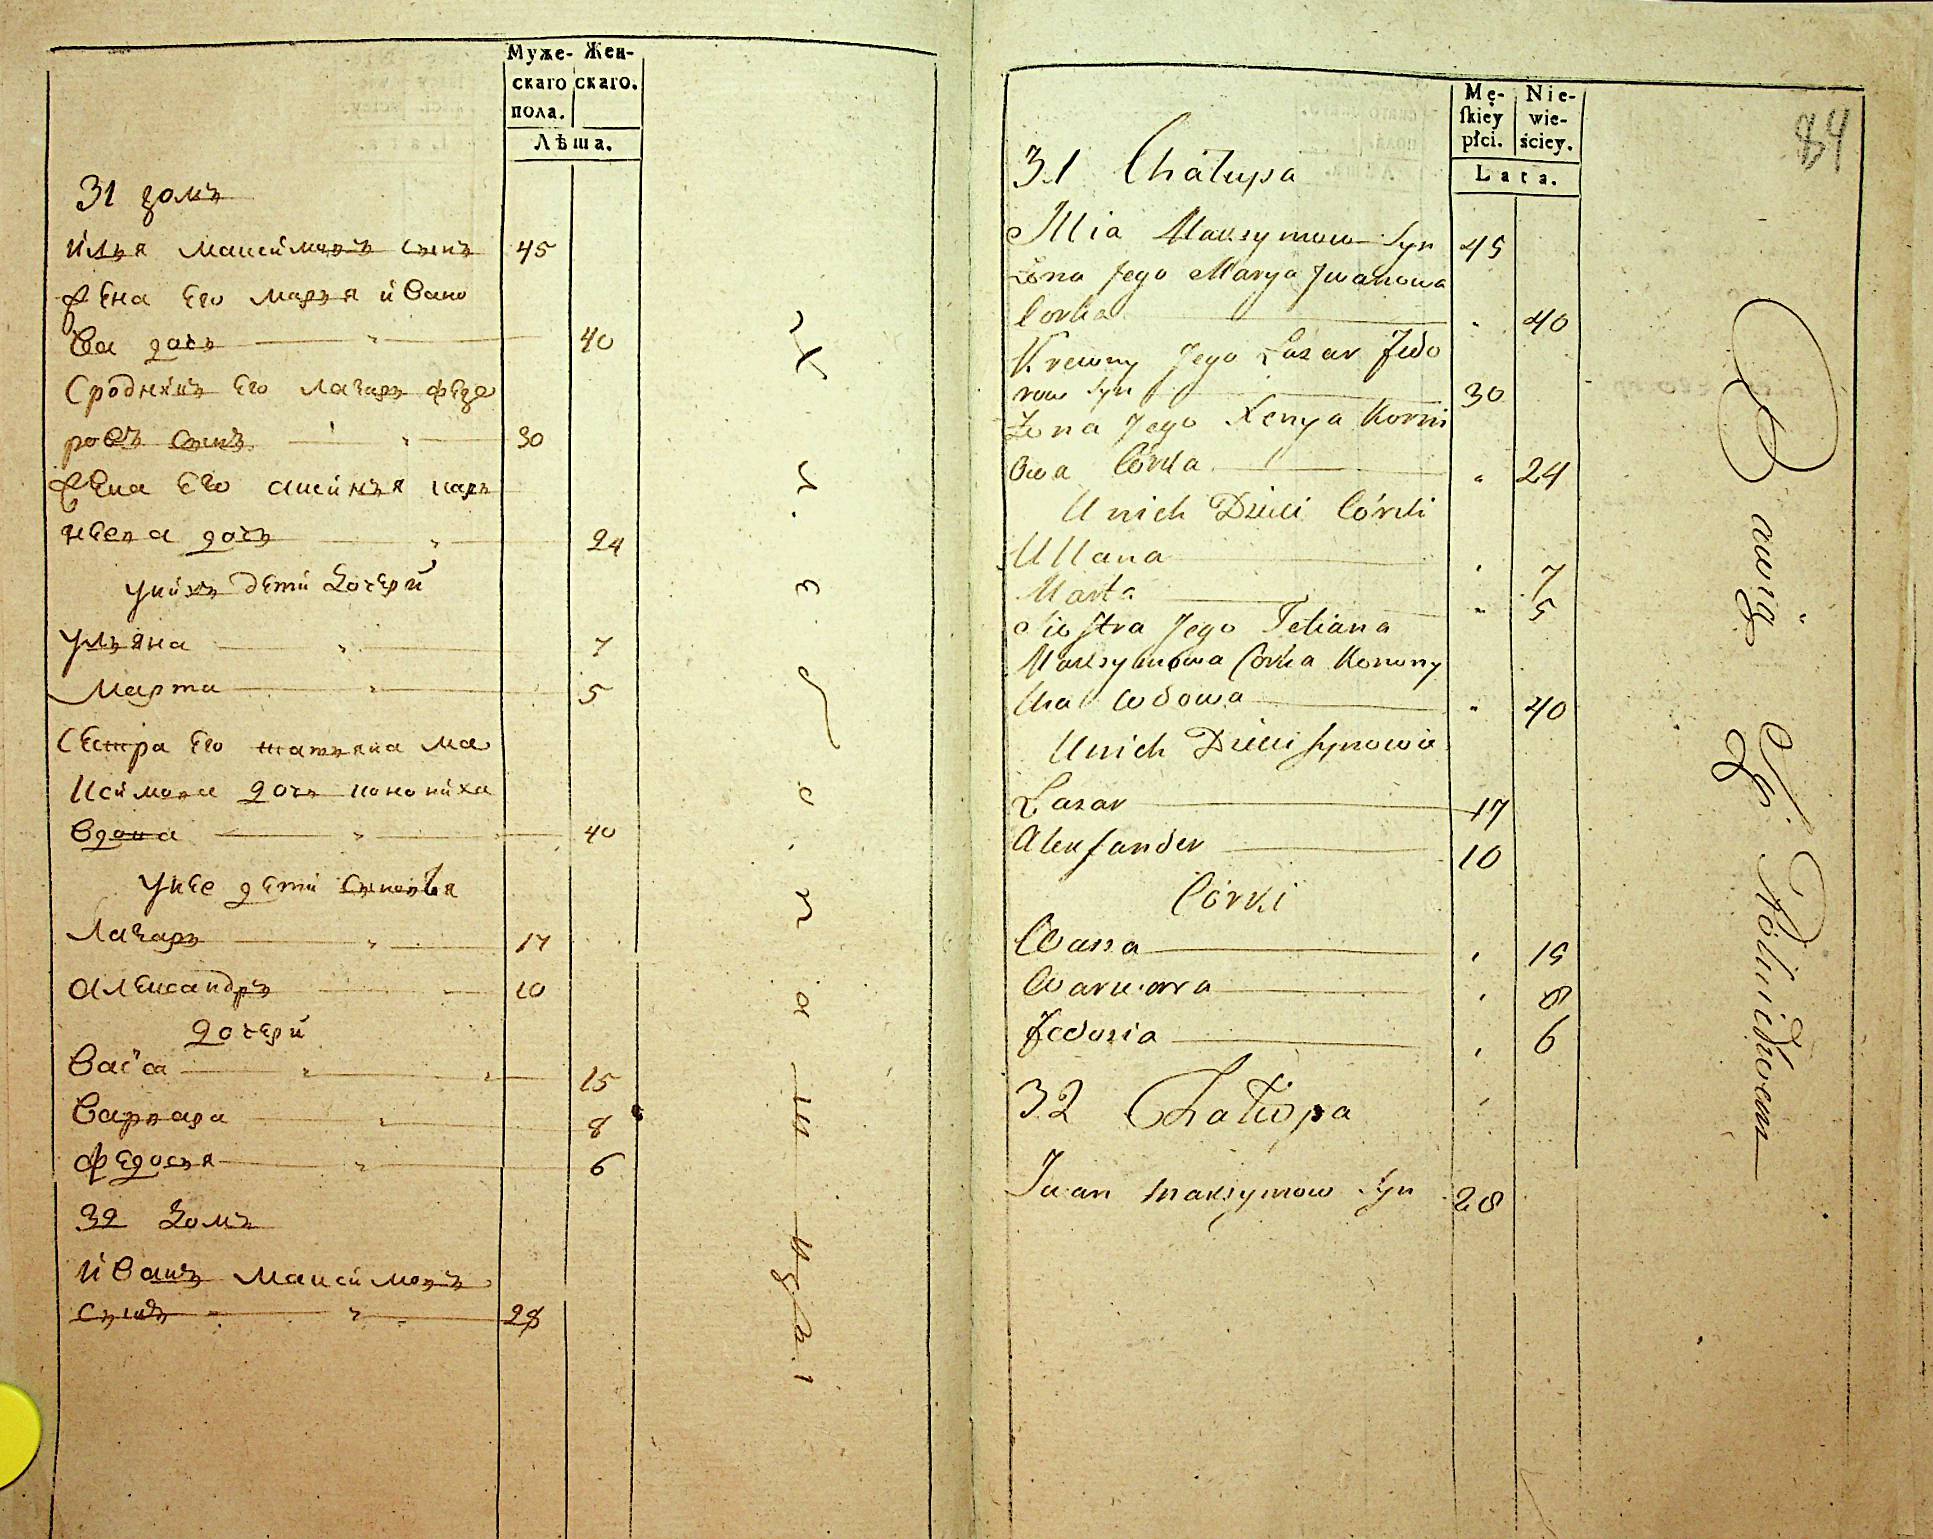 Муже- Жен-
скаго скаго.
пола.
Лѣта.
31 домъ
Илья Максимовъ сынъ 45
Жена Его Марья Ивано
ва дочь " 40
Сродникъ Его Лазарь Федо
ровъ сынъ " 30
Жена Его Ксинья Карн
иева дочь " 24
у них дети дочери
Ульяна " 7
Марта " 5
Сестра Его Татьяна Ма
ксимова дочь Конониха
вдова " 40
у нее дети сыновья
Лазарь " 17
Александръ " 10
дочери
Васса " " 15
Варвара " 8
Федосья " 6
32 домъ
Иванъ Максимовъ
сынъ " 28
Mę- Nie-
skiey wie-
płci. ściey.
Lata.
84
31 Chałupa
Illia Maksymow Syn 45
Żona Jego Marya Jwanowa
Corka " 40
Krewny Jego Łazar Fedo
row Syn 30
Żona Jego Xenya Korni
owa Córka " 24
U nich Dzieci Córki
Ullana " 7
Marta " 5
Siostra Jego Tetiana
Maksymowa Corka Konony
cha wdowa " 40
U nich Dzieci Synowie
Łazar 17
Alexsander 10
Córki
Wassa " 15
Warwara " 8
Fedosia " 6
32 Chałupa
Jwan Maksymow Syn 28